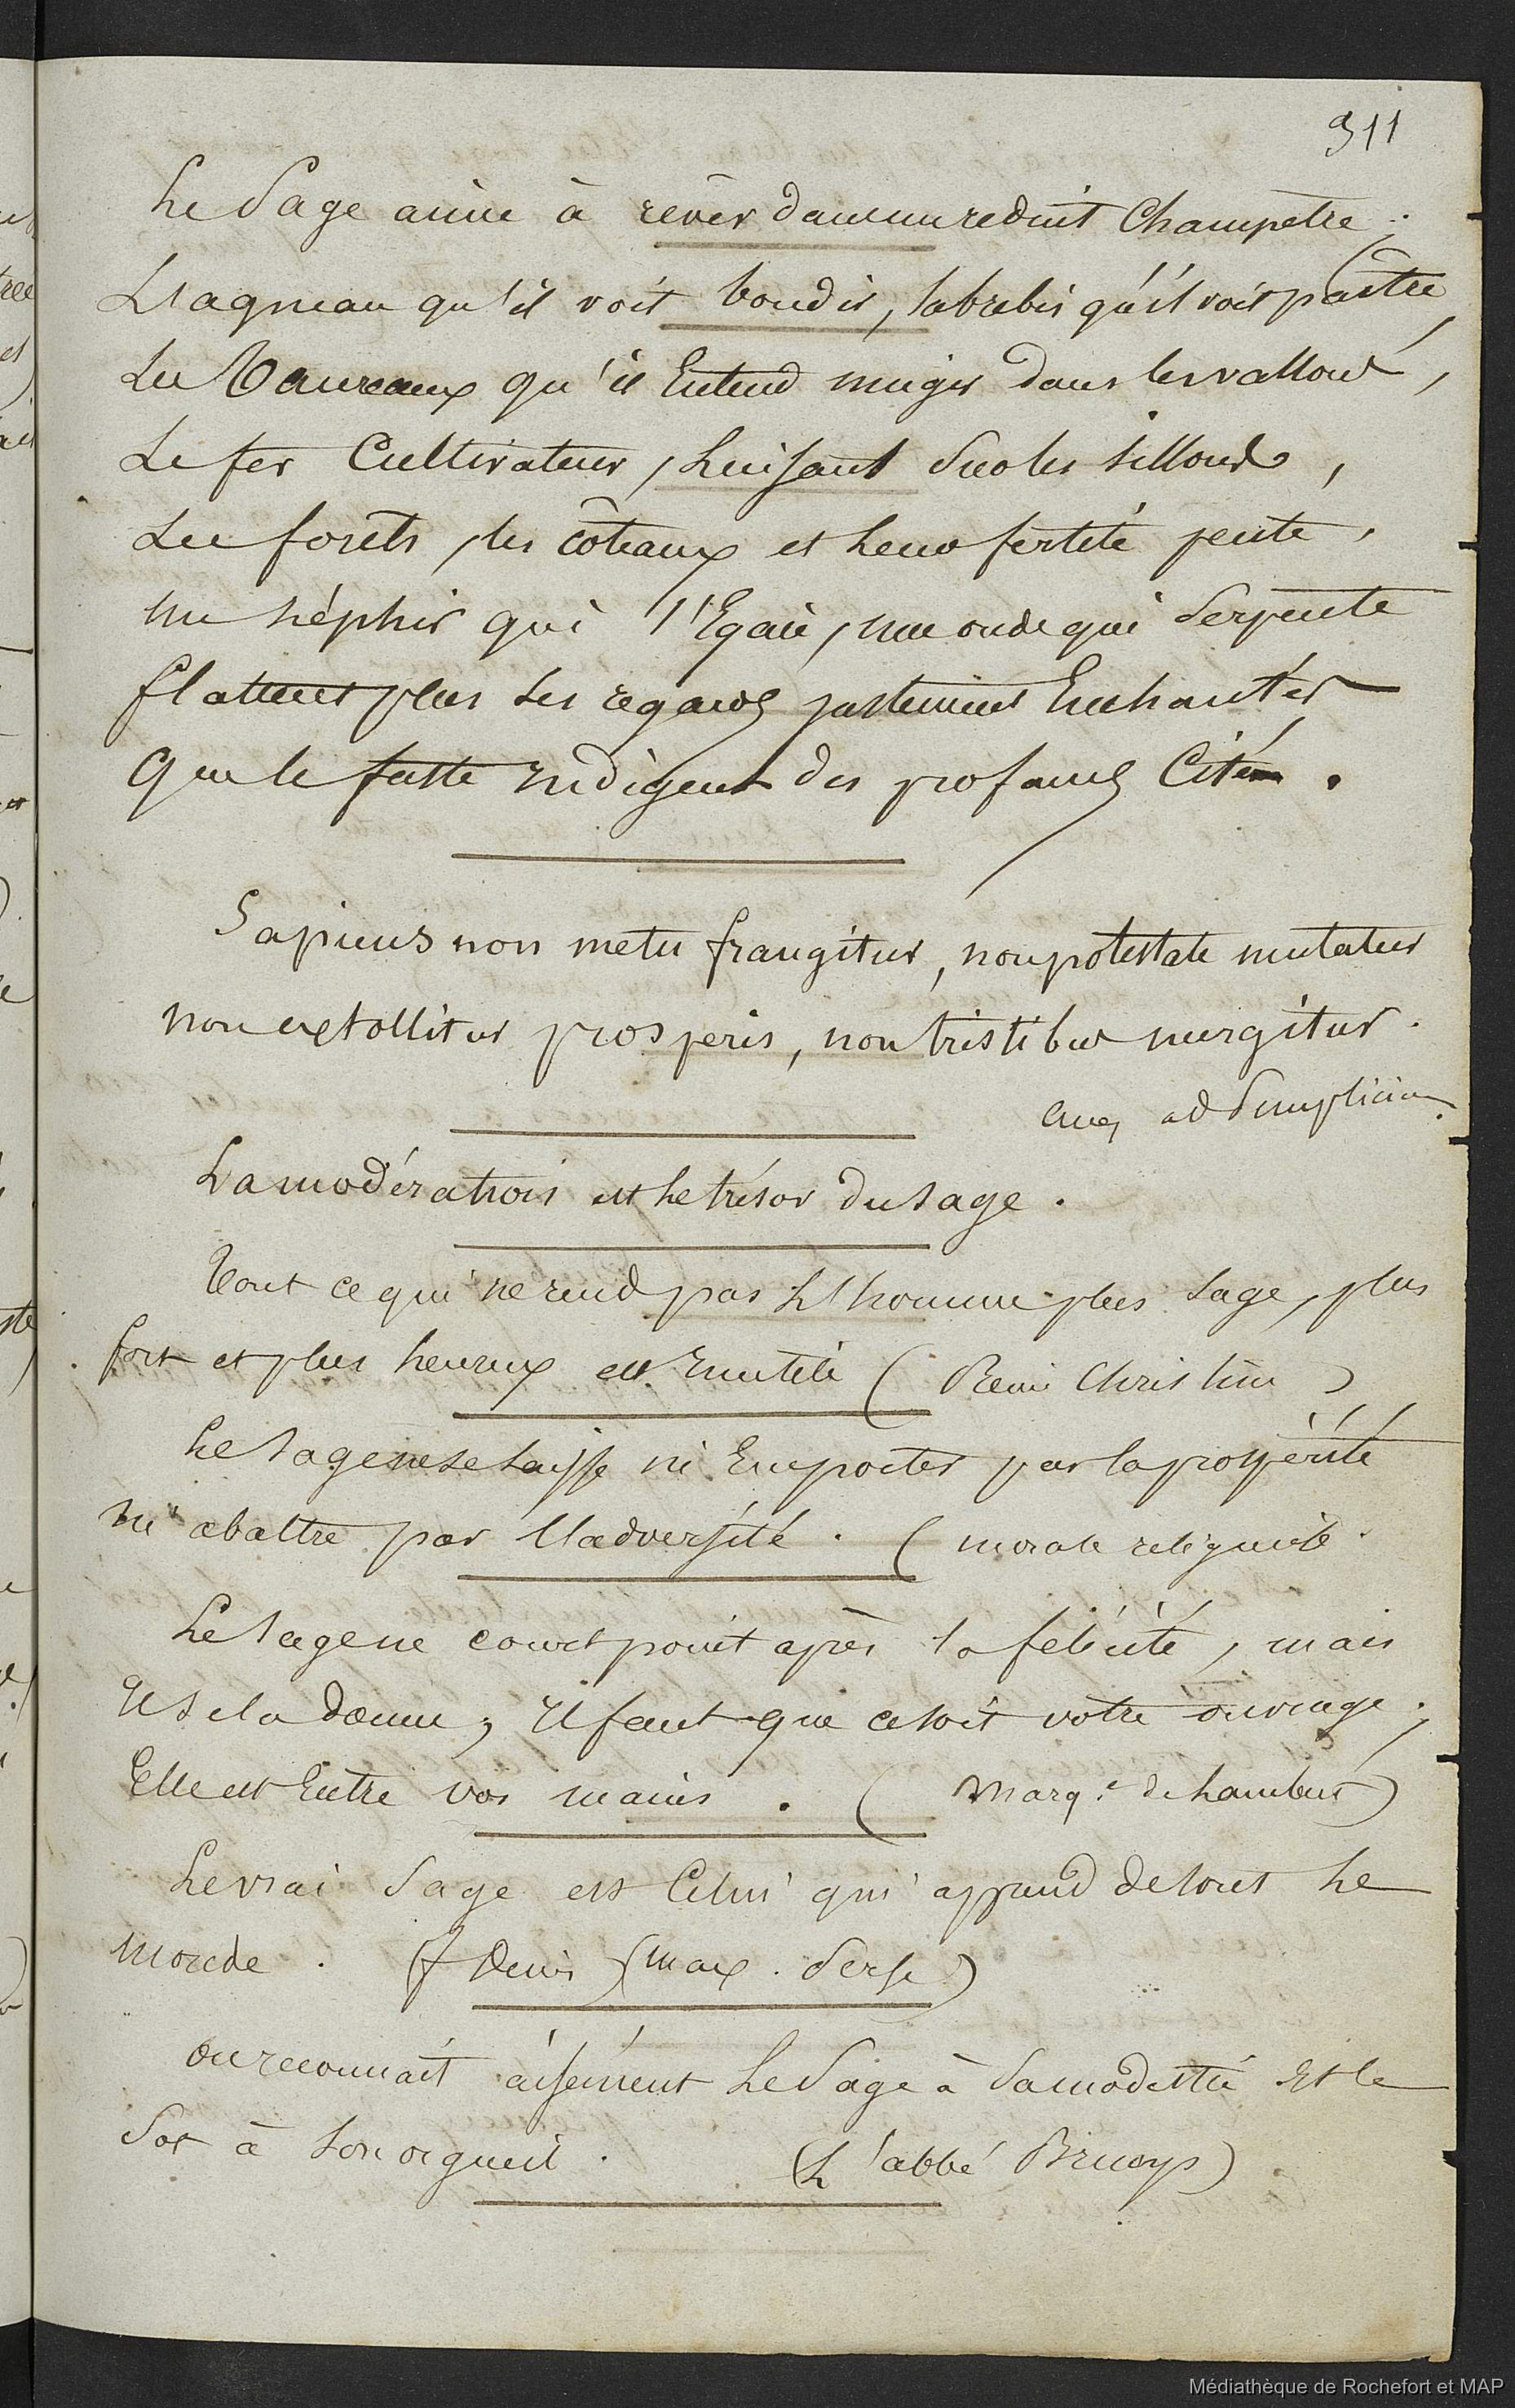 311
Le Sage aime à rêver dans un reduit Champêtre ;
L'agneau qu'il voit bondir, la brebis qu'il voit paître,
Les Taureaux qu'il Entend mugir dans les vallons,
Le fer Cultivateur, Luisant Sur les sillons,
Les forêts, les côteaux et leur fertile pente,
un zéphir qui l'Egaie, une onde qui Serpente
flattent plus ses regards justement Enchantés
Que le faste indigent des profanes Cités.
Sapiens non metu frangitur, non potestate mutatur
non extollitur prosperis, non tristibus mergitur.
ad Simplician.
La modération est le trésor du sage.
Tout ce qui ne rend pas L'homme plus sage, plus
fort et plus heureux est Inutile ( Remi Christin )
Le sage ne se laisse ni Emporter par la prospérité
ni abattre par l'adversité. ( morale
Le sage ne court point après la félicité, mais
Il se la donne ; Il faut que ce soit votre ouvrage ;
Elle est Entre vos mains. ( Marq.e de Lambert)
Le vrai Sage est Celui qui apprend de tout Le
monde. (f Denis (max. Perse)
on reconnaît aisément Le Sage à Sa modestie Et le
Sot à Son orgueil. (L'abbé Brueys)
Médiathèque de Rochefort et MAP